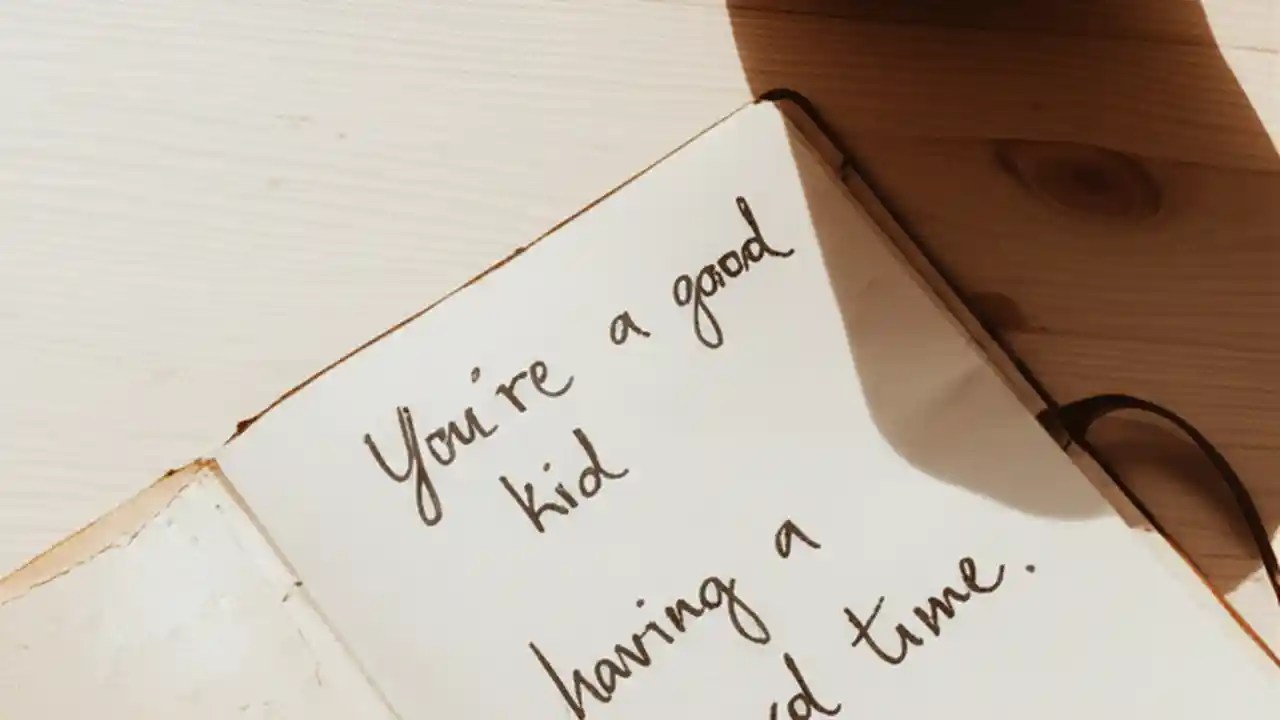 You're a good
kid
having a
time.